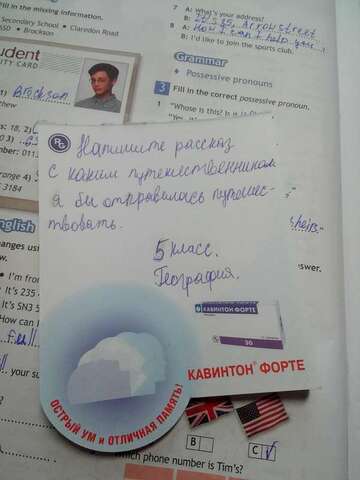 ll in the missing information.
Secondary School • Clarendon Road
ASD • Brockson
7 A: What's your address?
B: 22535, Arrow street
8 A: How I can I help you
B: I'd like to join the sports club.
Grammar
Possessive pronouns
3 Fill in the correct possessive pronoun.
1 "Whose is this? Is it
"Yes, it
udent
ITY CARD
Brockson
thew
18, 2)
mber: 011
3184
RG
Напишите рассказ
с каким путешественником
я бы отправилась путешес-
твовать.
5 класс.
География.
КАВИНТОН ФОРТЕ
30
ОСТРЫЙ УМ и ОТЛИЧНАЯ ПАМЯТЬ!
nglish
anges using
• I'm fro
It's 235
It's SN3 5
How can I
full
your su
theirs.
swer.
B
C
Which phone number is Tim's?